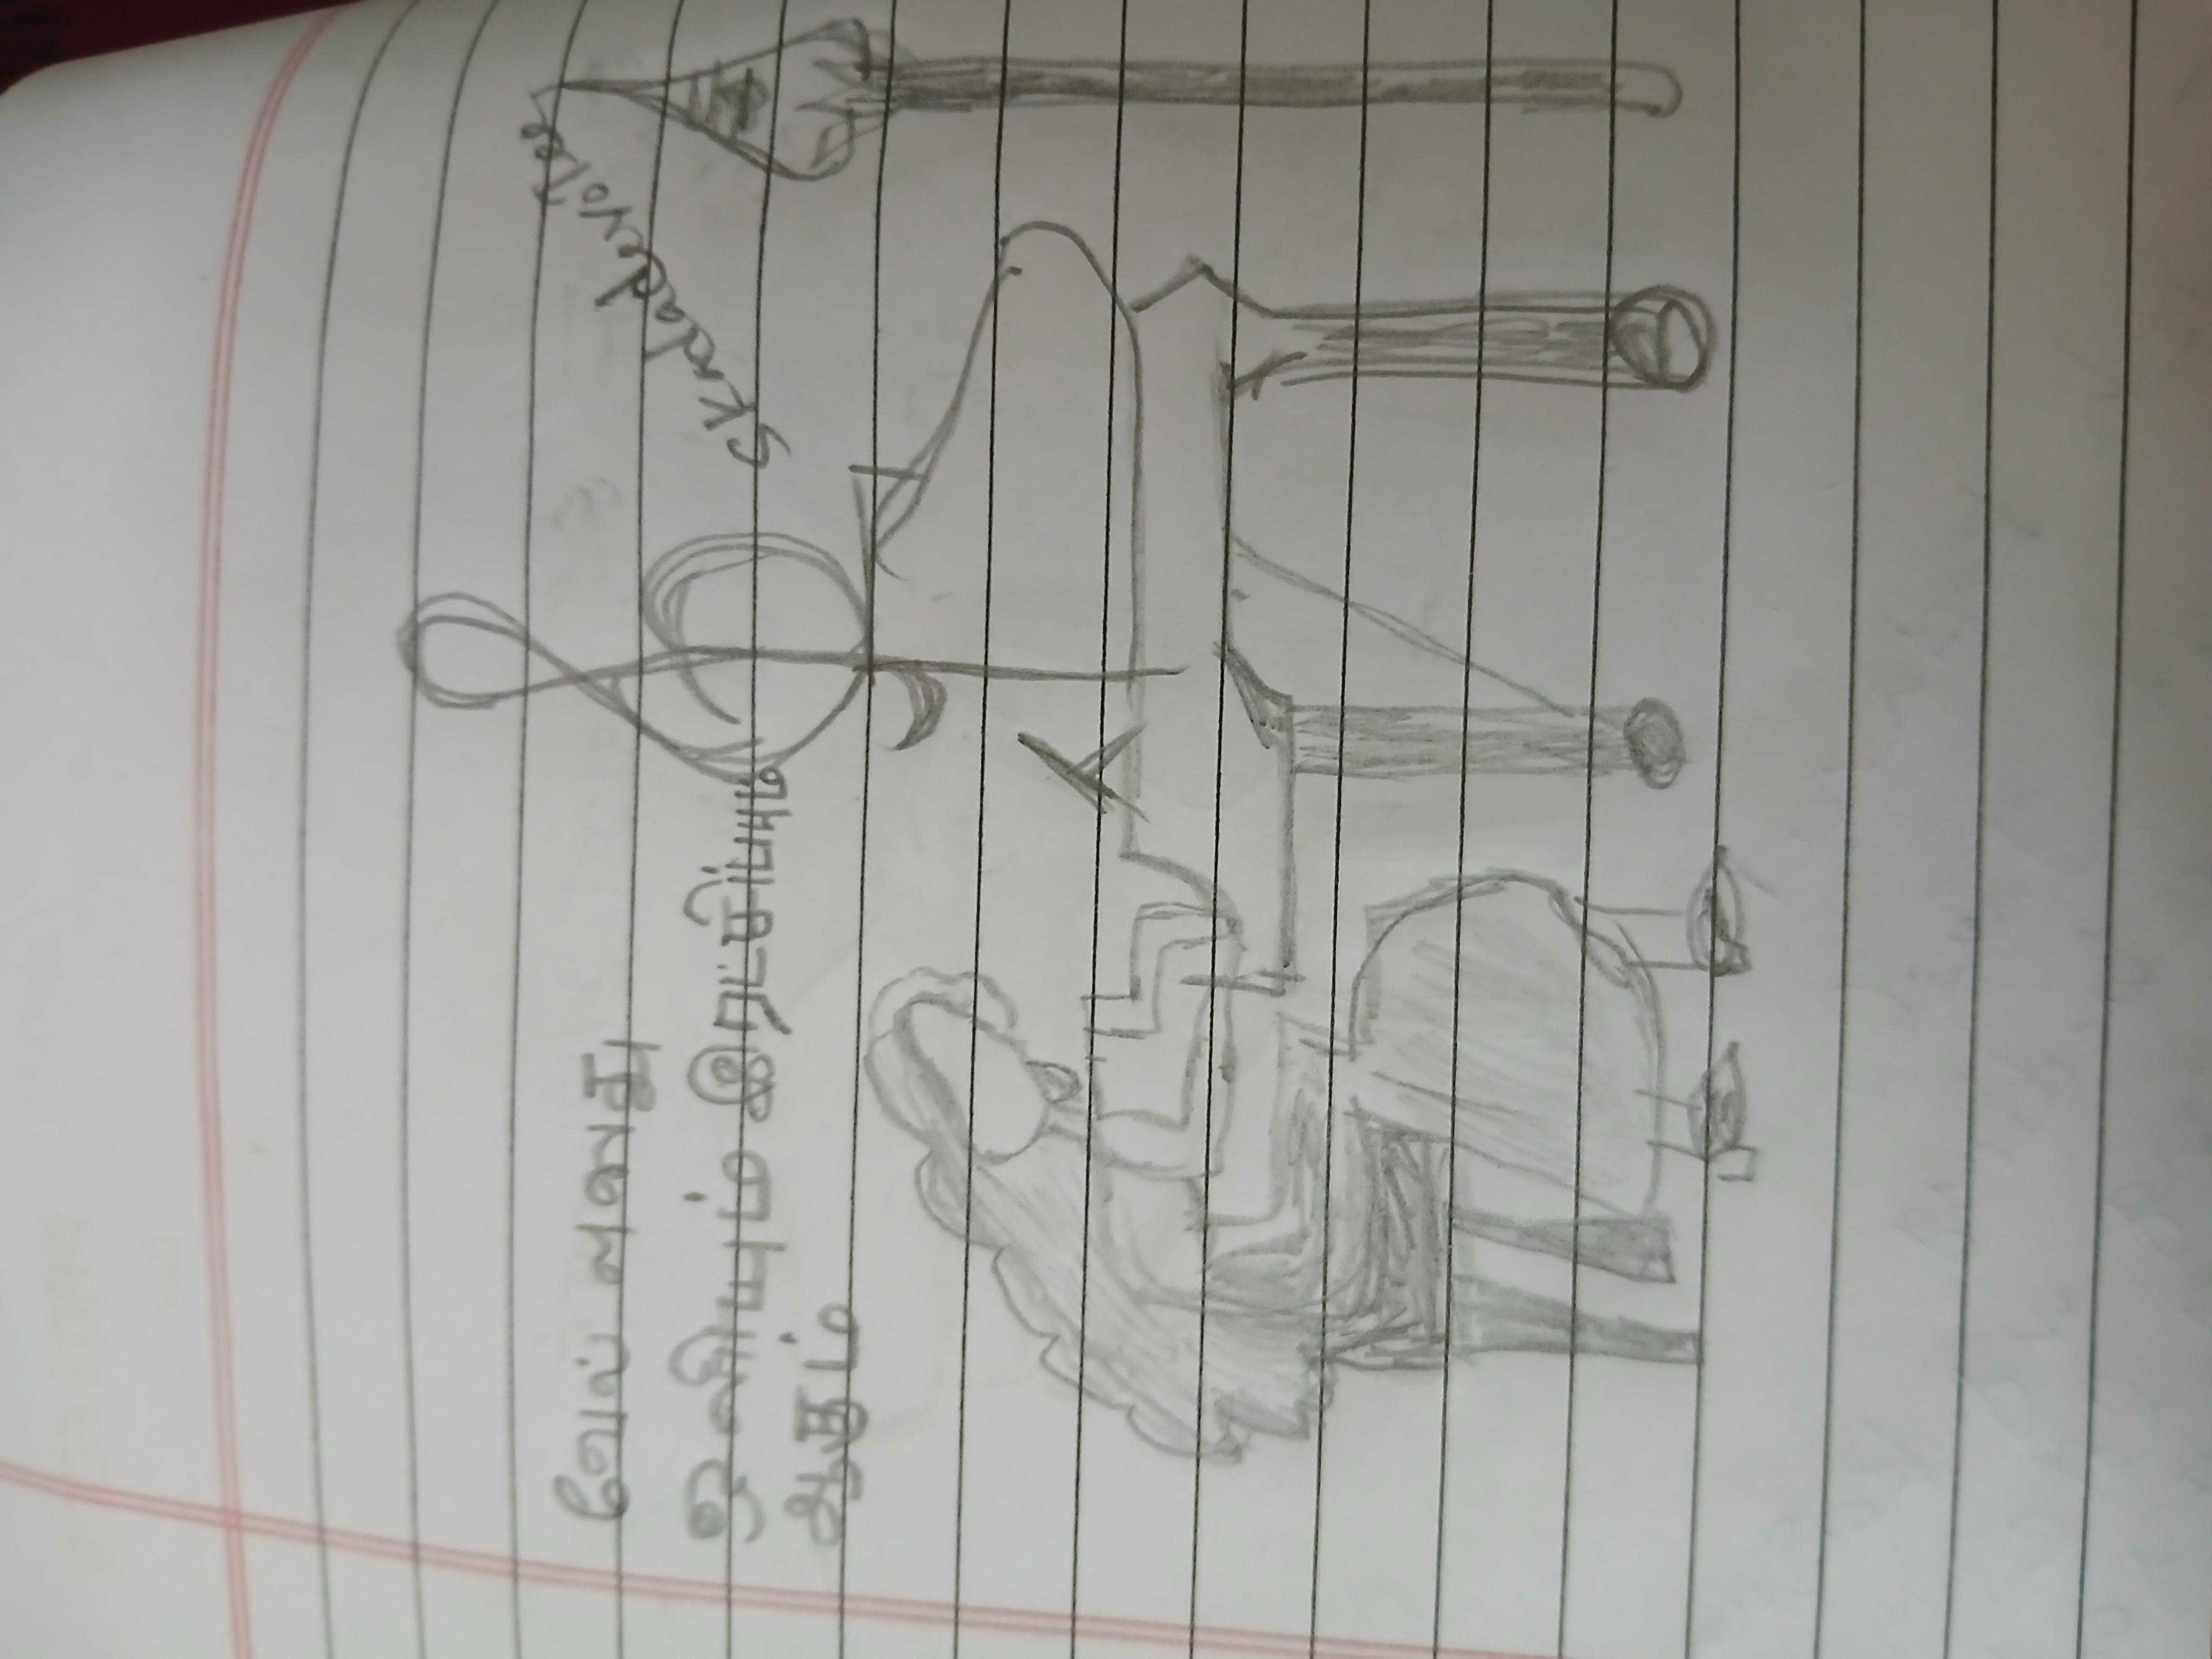 வேல் எனது
ஒளியும் இரட்சிப்பும்
ஆகும்
Skndadevotee